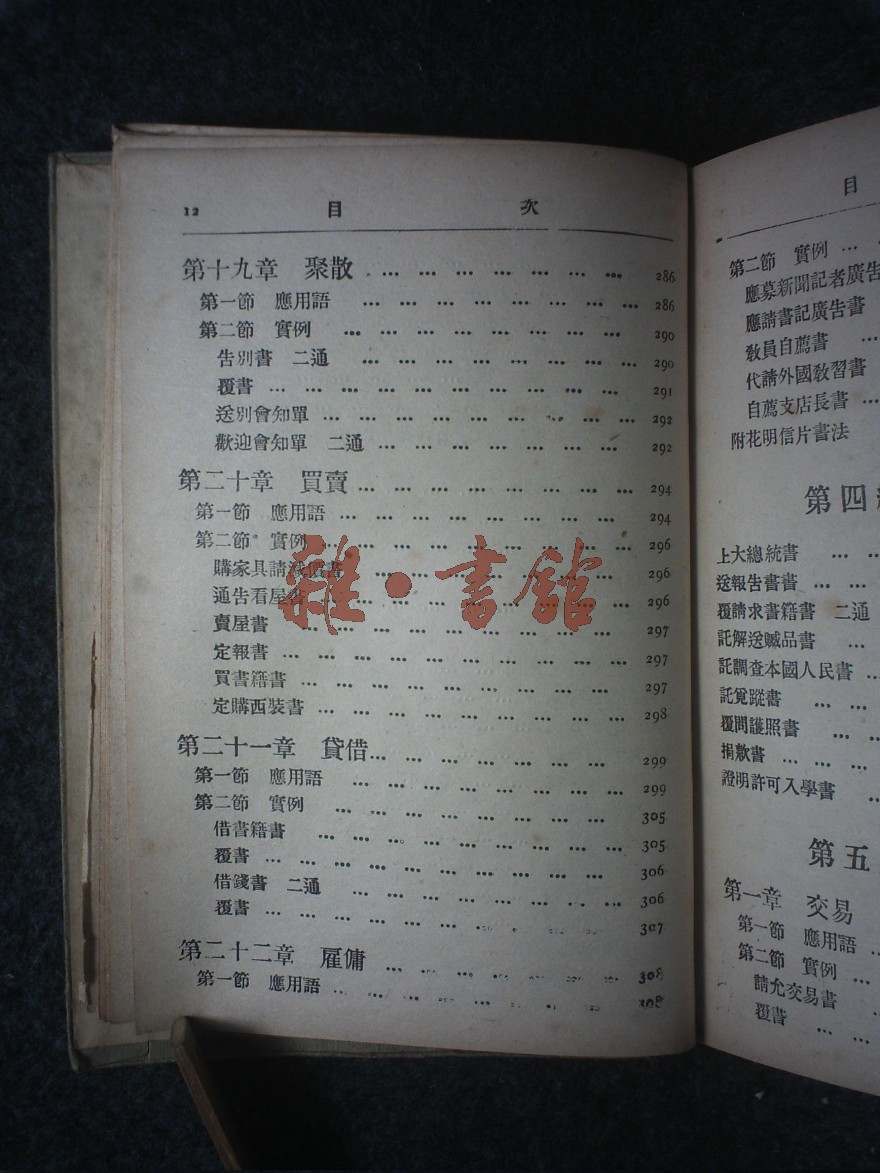 12 目 次
第十九章 聚散 … … … … … … … 286
第一節 應用語 … … … … … … … 286
第二節 實例 … … … … … … … … 290
告別書 二通 … … … … … … … 290
覆書 … … … … … … … … … 291
送別會知單 … … … … … … … … 292
歡迎會知單 二通 … … … … … … 292
第二十章 買賣 … … … … … … … 294
第一節 應用語 … … … … … … … 294
第二節 實例 … … … … … … … 296
購家具請減價書 … … … … … … 296
通告看屋書 … … … … … … … 296
賣屋書 … … … … … … … … 297
定報書 … … … … … … … … 297
買書籍書 … … … … … … … … 297
定購西裝書 … … … … … … … 298
第二十一章 貸借 … … … … … … 299
第一節 應用語 … … … … … … … 299
第二節 實例 … … … … … … … 305
借書籍書 … … … … … … … … 305
覆書 … … … … … … … … … 306
借錢書 二通 … … … … … … … 306
覆書 … … … … … … … … … 307
第二十二章 雇傭 … … … … … … 308
第一節 應用語 … … … … … … … 308
雜·書館
目
第二節 實例 … …
應募新聞記者廣告
應請書記廣告書
敎員自薦書 …
代請外國敎習書
自薦支店長書 …
附花明信片書法
第四
上大總統書 … …
送報告書書 … …
覆請求書籍書 二通
託解送贓品書 …
託調查本國人民書 …
託覓蹤書 … …
覆問護照書 …
捐欵書 … … …
證明許可入學書 …
第五
第一章 交易
第一節 應用語 …
第二節 實例 …
請允交易書 …
覆書 … …